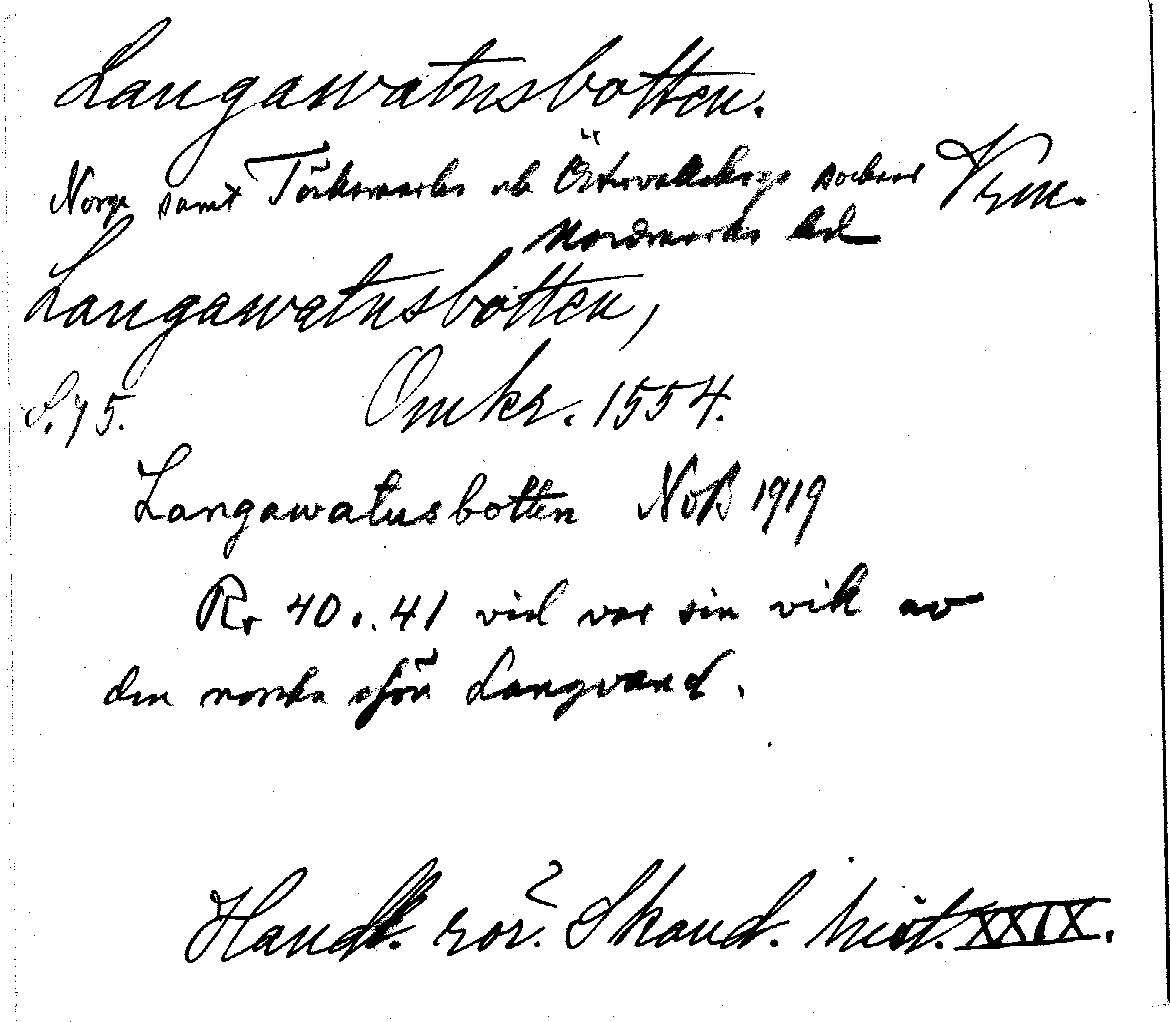 Langawatnsbotten.
Norge samt Töcksmarks ock Östervallskogs socknar Vrm.
Nordmarks hd
Langawatnsbotten,
S. 75. Omkr. 1554.
Langawatnsbotten NoB 1919
Rr 40 o. 41 vid var sin vik av
den norska sjön Langvand.
Handl. rör. Skand. hist. XXIX.